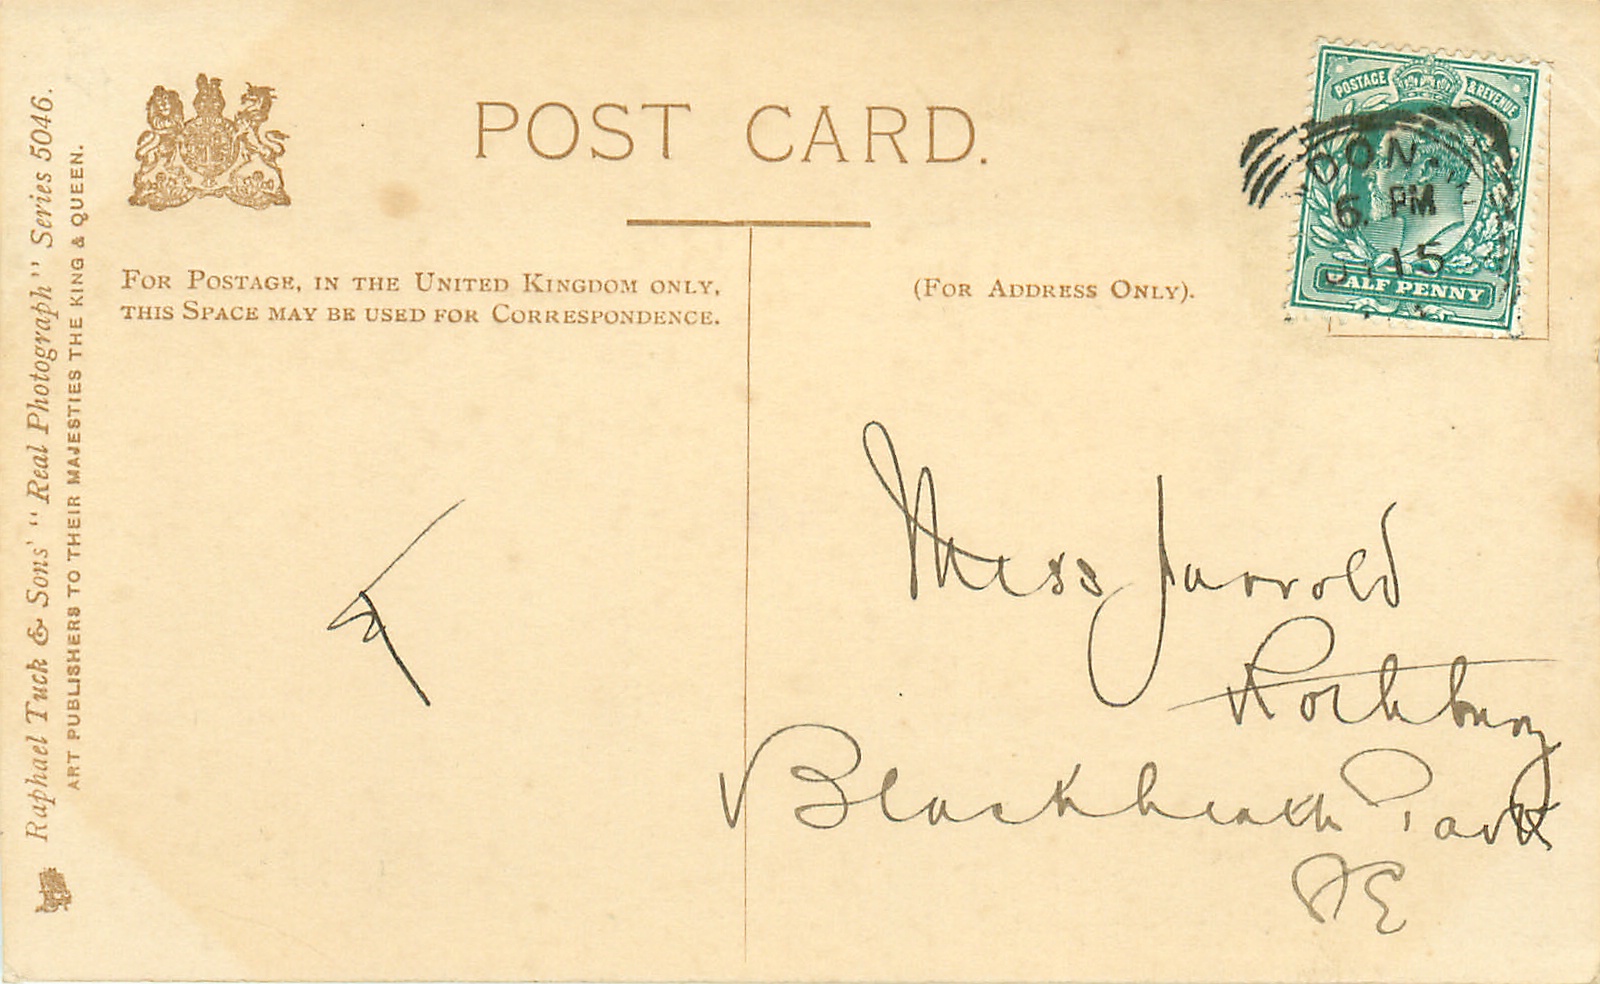 Raphael Tuck & Sons' "Real Photograph" Series 5046.
ART PUBLISHERS TO THEIR MAJESTIES THE KING & QUEEN.
POST CARD.
FOR POSTAGE, IN THE UNITED KINGDOM ONLY,
THIS SPACE MAY BE USED FOR CORRESPONDENCE.
(FOR ADDRESS ONLY).
POSTAGE & REVENUE
6. PM
15
ALF PENNY
Miss Jarrold
Rothbury
Blackheath Park
SE